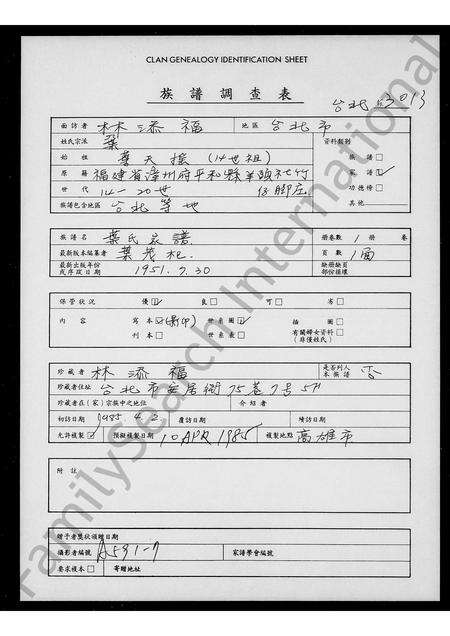 CLAN GENEALOGY IDENTIFICATION SHEET
族譜調查表
台北 53013
面訪者 林添福 地區 台北市
姓氏宗派 葉 資料類別
始祖 葉天 (14世祖) 族譜□
原籍 福建省漳州府平和縣 家譜☑
世代 14—20世 功德榜□
族譜包含地區 台北等地 其他
族譜名 葉氏家譜 冊卷數 1 冊 卷
最新版本編纂者 葉茂杞 頁數 1面
最新出版年份或序跋日期 1951.7.30 缺冊缺頁部份損壞
保管狀況 優☑ 良□ 可□ 劣□
內容 寫本☑(影印) 世系圖☑ 插圖□
刊本□ 世系表□ 有關婦女資料□
(非僅姓氏)
珍藏者 林添福 是否列入本族譜 否
珍藏者住址 台北市安居街75巷7号5F
珍藏者在(家)宗族中之地位 介紹者
初訪日期 1985 4.2 覆訪日期 續訪日期
允許複製☑ 預擬複製日期 10 APR 1985 複製地點 高雄市
附註
贈予者獎狀頒贈日期
攝影者編號 A591-7 家譜學會編號
要求複本□ 寄贈地址
FamilySearch International